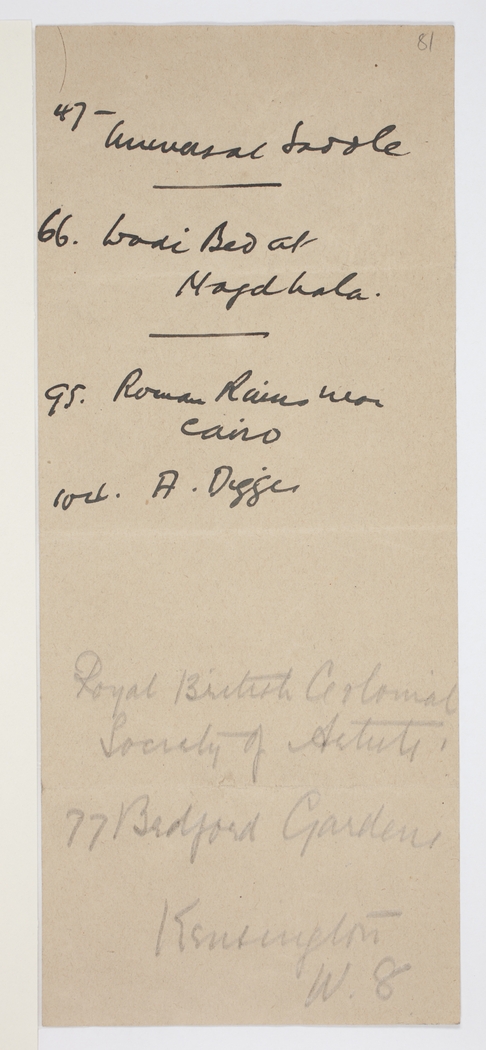 81
47- Universal Saddle
66. Wadi Bed at
Magdhala.
95. Roman Ruins near
Cairo
104. A. Digger
Royal British Colonial
Society of Artists
77 Bedford Gardens
Kensington
W. 8